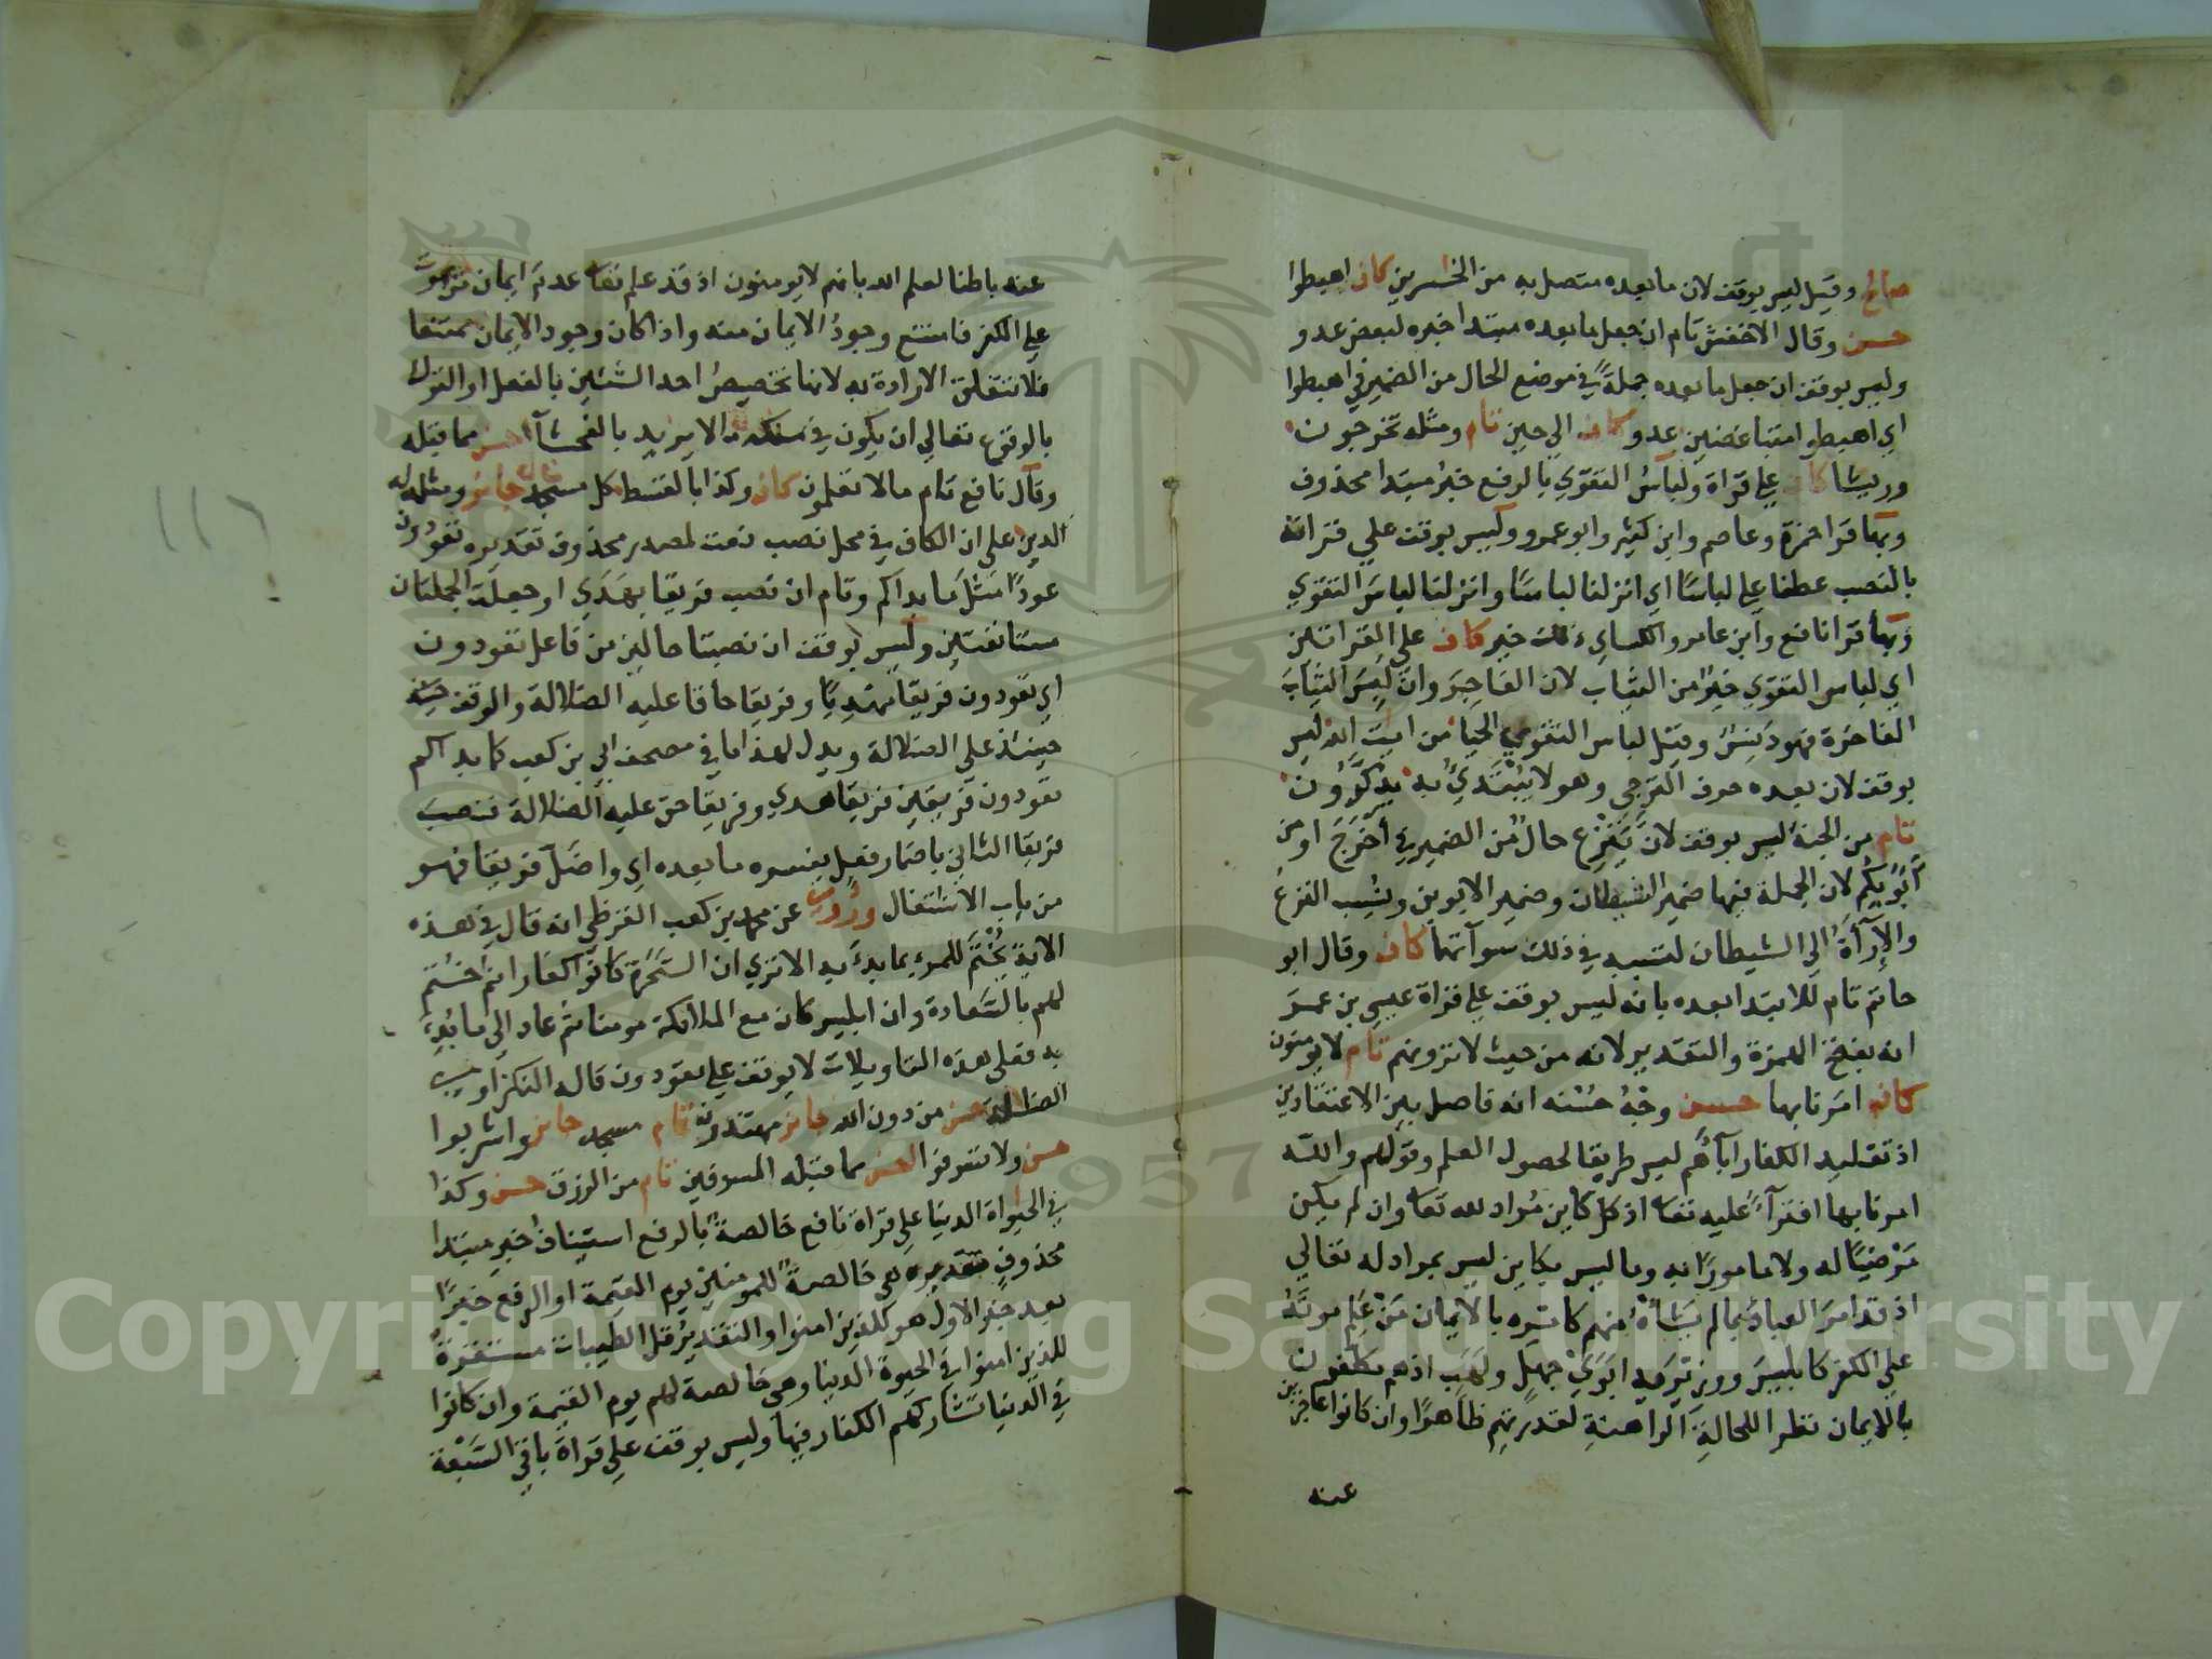 صالح وقيل ليس بوقف لان ما بعده متصل به من الخسرين كاف اهبطوا
حسن وقال الاخفش تام ان جعل ما بعده مبتدا خبره لبعض عدو
وليس بوقف ان جعل ما بعده جملةً في موضع الحال من الضمير في اهبطوا
اي اهبطوا متباغضين عدو كاف الي حين تام ومثله تخرجون
وريشا كاف علي قراة ولباسُ التقوي بالرفع خبرُ مبتدا محذوف
وبها قرا حمزة وعاصم وابن كثير وابو عمرو وليس بوقف علي قراته
بالنصب عطفا علي لباسًا اي انزلنا لباسًا وانزلنا لباسَ التقوي
وبها قرا نافع وابن عامر والكساي ذلك خير كاف علي القراتين
اي لباس التقوي خيرٌ من الثياب لان الفاجرَ وان لَبِسَ الثيابَ
الفاخرة فهو دَنِسٌ وقيل لباس التقوي الحيا من ايت الله ليس
بوقف لان بعده حرف الترجي وهو لا يُبْتَديُ به يذكرون
تام من الجنة ليس بوقف لان يَنْزِع حالٌ من الضمير في أَخْرَجَ او من
أبَوَيكم لان الجملة فيها ضمير الشيطان وضمير الابوين ونسب النزعُ
والإراءَةُ الي الشيطان لتسببه في ذلك سوآتهما كاف وقال ابو
حاتم تام للابتدا بعده بانه ليس بوقف علي قراة عيسي بن عمر
انه بفتح الهمزة والتقدير لانه من حيث لا ترونهم تام لا يومنون
كاف امرنا بها حسن وجْهُ حُسْنه انه فاصل بين الاعتقادين
اذ تقليد الكفار اباءَهم ليس طريقا لحصول العلم وقولهم والله
امرنا بها افتراءً عليه تعا اذ كل كاين مُراد لله تعا وان لم يكن
مَرْضيًا له ولا مامورًا به وما ليس بكاين ليس بمراد له تعالي
اذ قد امرَ العبادَ بما لم يشاهُ منهم كامره بالايمان مَنْ عَلِم موتَهُ
علي الكفر كابليسَ ووزيرَيه ابوَيْ جهلٍ ولهَبٍ اذ هم مكلفون
بالايمان نظرا للحالةِ الراهنةِ لقدرتهم ظاهرًا وان كانوا عاجزين
عنه
عنه باطنا لعلم الله بانهم لا يومنون اذ قد علم تعا عدمَ ايمان
علي الكفر فامتنع وجودُ الايمان منه واذا كان وجود الايمان ممتنعا
فلا تتعلق الارادة به لانها تخصيصُ احد الشيئين بالفعل او الترك
بالوقوع تعالي ان يكون في ملكه ما لا يريد بالفحشآ حسن مما قبله
وقال نافع تام ما لا تعلمون كاف وكذا بالقسط كل مسجد جائز ومثله له
الدين علي ان الكاف في محل نصب نعت لمصدر محذوف تقديره تعودون
عودًا مثلَ ما بداكم وتام ان نصب فريقا بهَدَي او جعلت الجملتان
مستانفتين وليس بوقف ان نصبتا حالين من فاعل تعودون
اي تعودون فريقا مهديًا وفريقا حاقا عليه الضلالة والوقف
حينئذ علي الضلالة ويدل لهذا ما في مصحف ابي بن كعب كما بداكم
تعودون فريقين فريقا هدي وفريقا حق عليه الضلالة فنصب
فريقا الثاني باضمار فعل يفسره ما بعده اي واضلَّ فريقا فهو
من باب الاشتغال وروي عن محمد بن كعب القرظي انه قال في هذه
الاية يُخْتَمُ للمرء بما بدءَ به الا تري ان السَحَرة كانوا كفارا ثم خُتم
لهم بالسَّعادة وان ابليس كان مع الملائكة مومنا ثم عاد الي ما بُدِئ
به فعلي هذه التاويلات لا يوقف علي تعودون قاله النكزاوي
الضللة حسن من دون الله جائز مهتدون تام مسجد جائز واشربوا
حسن ولا تسرفوا احسن مما قبله المسرفين تام من الرزق حسن وكذا
في الحيواة الدنيا علي قراة نافع خالصةٌ بالرفع استيناف خبر مبتدا
محذوف تقديره هي خالصةٌ للمومنين يوم القيمة او الرفع خبرًا
بعد خبرٍ والاول هو للذين امنوا والتقديرُ قل الطيبات مستقرةٌ
للذين امنوا في الحيوة الدنيا وهي خالصة لهم يوم القيمة وان كانوا
في الدنيا تشاركهم الكفار فيها وليس بوقف علي قراة باقي السَّبْعة
١١٦
Copyright © King Saud University
1957